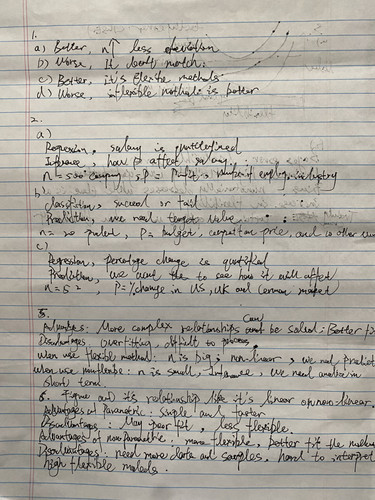 1.
a) Better, n↑ less deviation
b) Worse, It doesn't match.
c) Better, it's flexible methods.
d) Worse, inflexible method is better
2.
a)
Regression, salary is quantified
Inference, how P affect salary.
n = 500 company, P = profit, number of employ, industry
b)
classification, succeed or fail
Prediction, we need target value
n = 20 product, P = budget, competition price, and 10 other
c)
Regression, percentage change is quantified
Prediction, we want to see how it will affect
n = 52, P = % change in US, UK and German market
5.
Advantages: More complex relationships can be solved; Better fit
Disadvantages, overfitting, difficult to process.
When use flexible method: n is big, non-linear, we need predict
when use inflexible: n is small, we need analysis in
short term.
6. Figure and its relationship like it's linear or non-linear.
Advantages of Parametric: simple and faster
Disadvantages: May poor fit, less flexible.
Advantages of non-Parametric: more flexible, better fit the
Disadvantages: need more data and samples, hard to interpret
high flexible models.